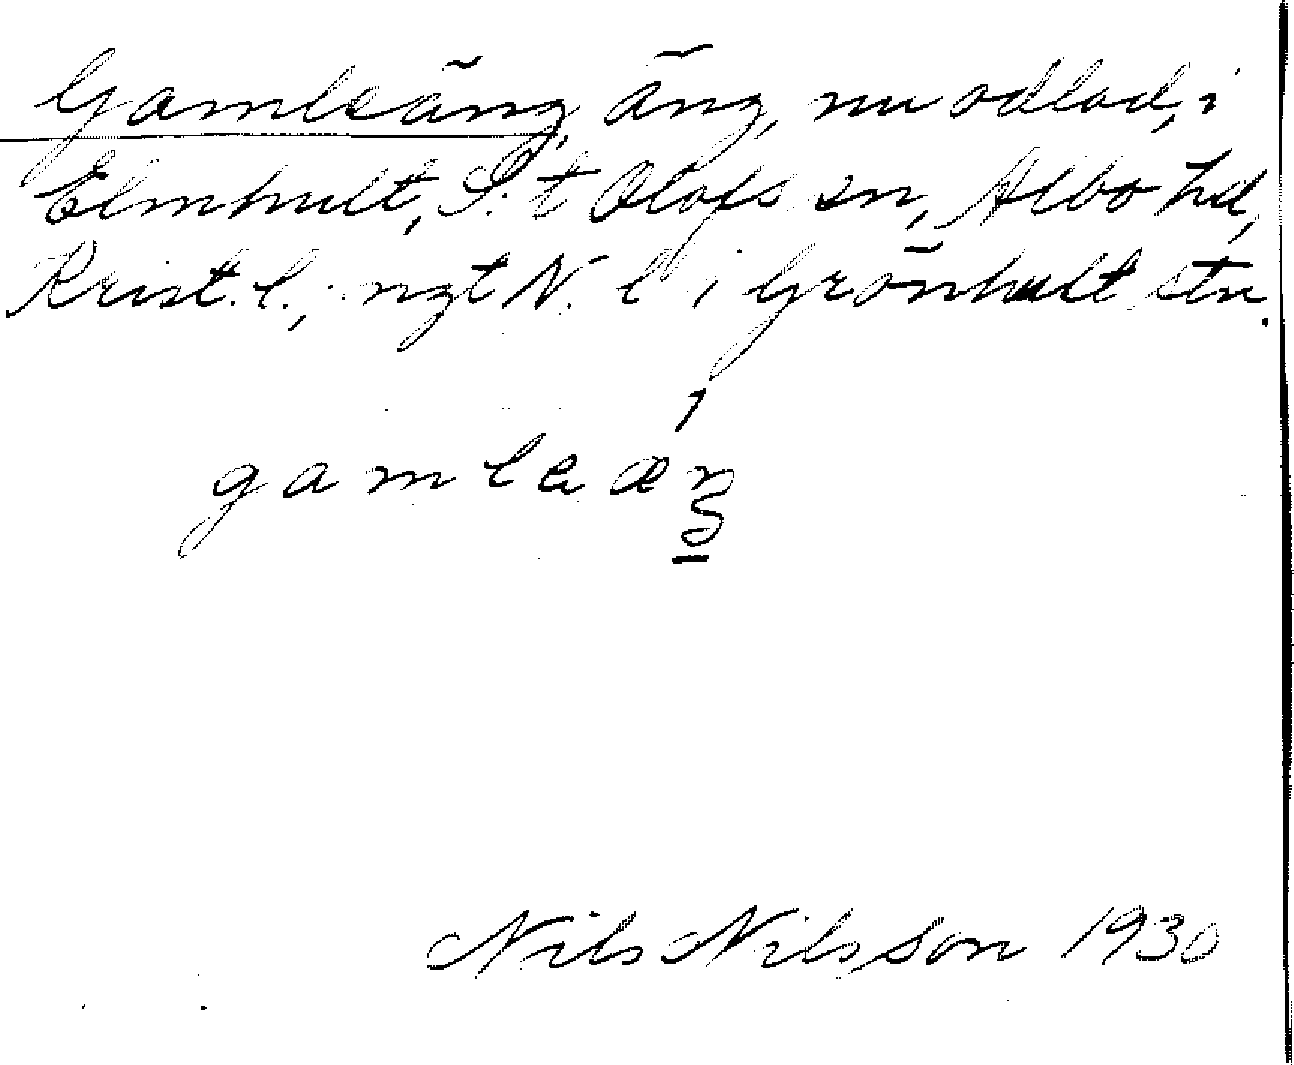 Gamleäng, äng, nu odlad, i
Elmhult, S:t Olofs sn, Albo hd,
Krist. l.; ngt N. l i Grönhult stn.
gamlaæŋ
Nils Nilsson 1930